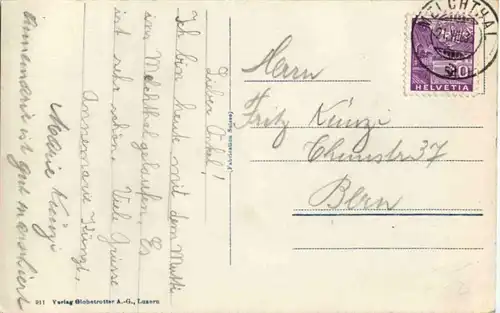 Lieber Onkel!
Ich bin heute mit dem Mutti
ins Melchthal gelaufen. Es
ist sehr schön. Viele Grüsse
Annemarie Künzi.
Marie Künzi
Annemarie ist gut marschiert
MELCHTHAL
10
HELVETIA
Herrn
Fritz Künzi
Thunstr 37
Bern
311 Verlag Globetrotter A.-G., Luzern